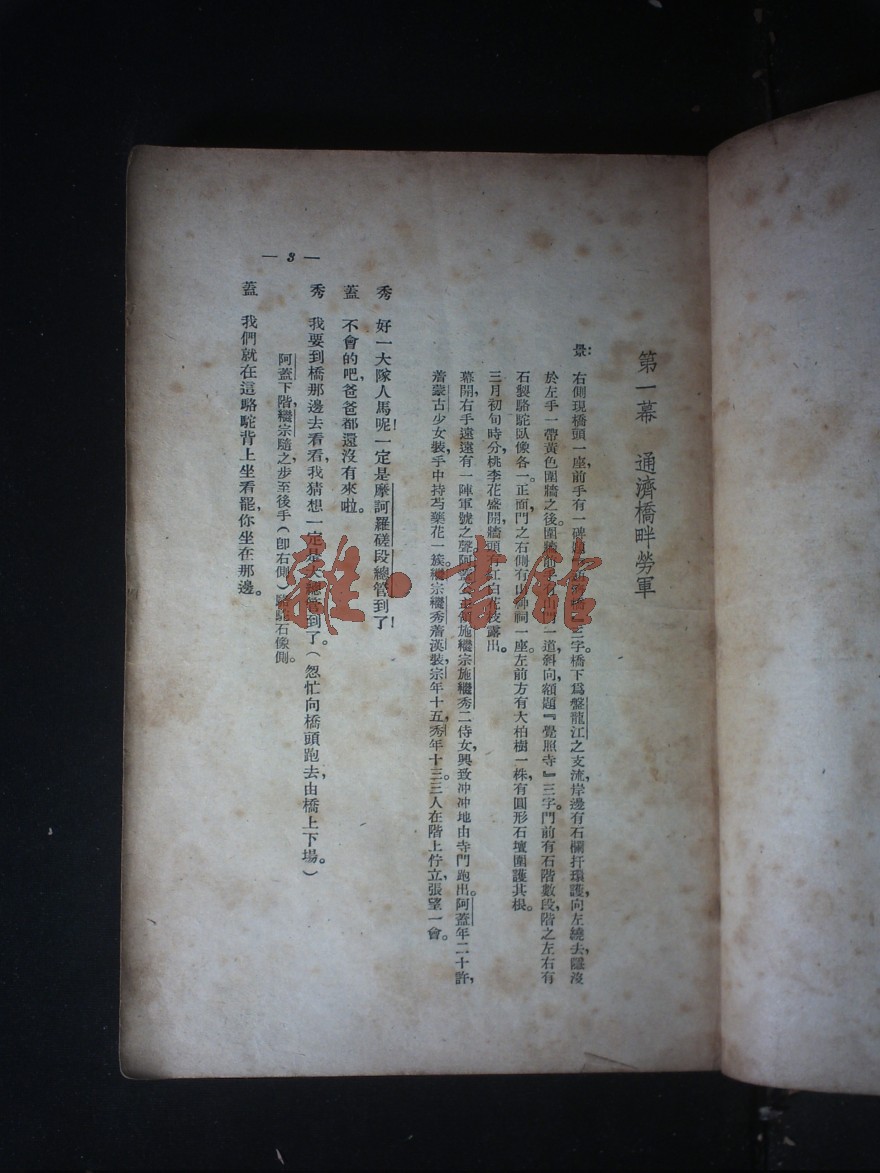 第一幕　通濟橋畔勞軍
景：右側現橋頭一座，前手有一碑，三字，橋下爲盤龍江之支流，岸邊有石欄扞環護，向左繞去，隱沒
於左手一帶黃色圍牆之後。圍牆一道，斜向，額題『覺照寺』三字。門前有石階數段，階之左右有
石製駱駝臥像各一。正面門之右側有山神祠一座，左前方有大柏樹一株，有圓形石壇圍護其根。
三月初旬時分，桃李花盛開，牆頭有紅白花枝露出。
幕開，右手遠遠有一陣軍號之聲，阿蓋公主領施繼宗施繼秀二侍女，興致冲冲地由寺門跑出。阿蓋年二十許，
着蒙古少女裝，手中持芍藥花一簇。繼宗繼秀着漢裝，宗年十五，秀年十三。三人在階上佇立，張望一會。
秀　好一大隊人馬呢！一定是摩訶羅磋段總管到了！
蓋　不會的吧，爸爸都還沒有來啦。
秀　我要到橋那邊去看看，我猜想一定是大總管到了。（忽忙向橋頭跑去，由橋上下場。）
阿蓋下階，繼宗隨之步至後手（卽右側）駱駝石像側。
蓋　我們就在這駱駝背上坐看罷，你坐在那邊。
— 3 —
雜·書館